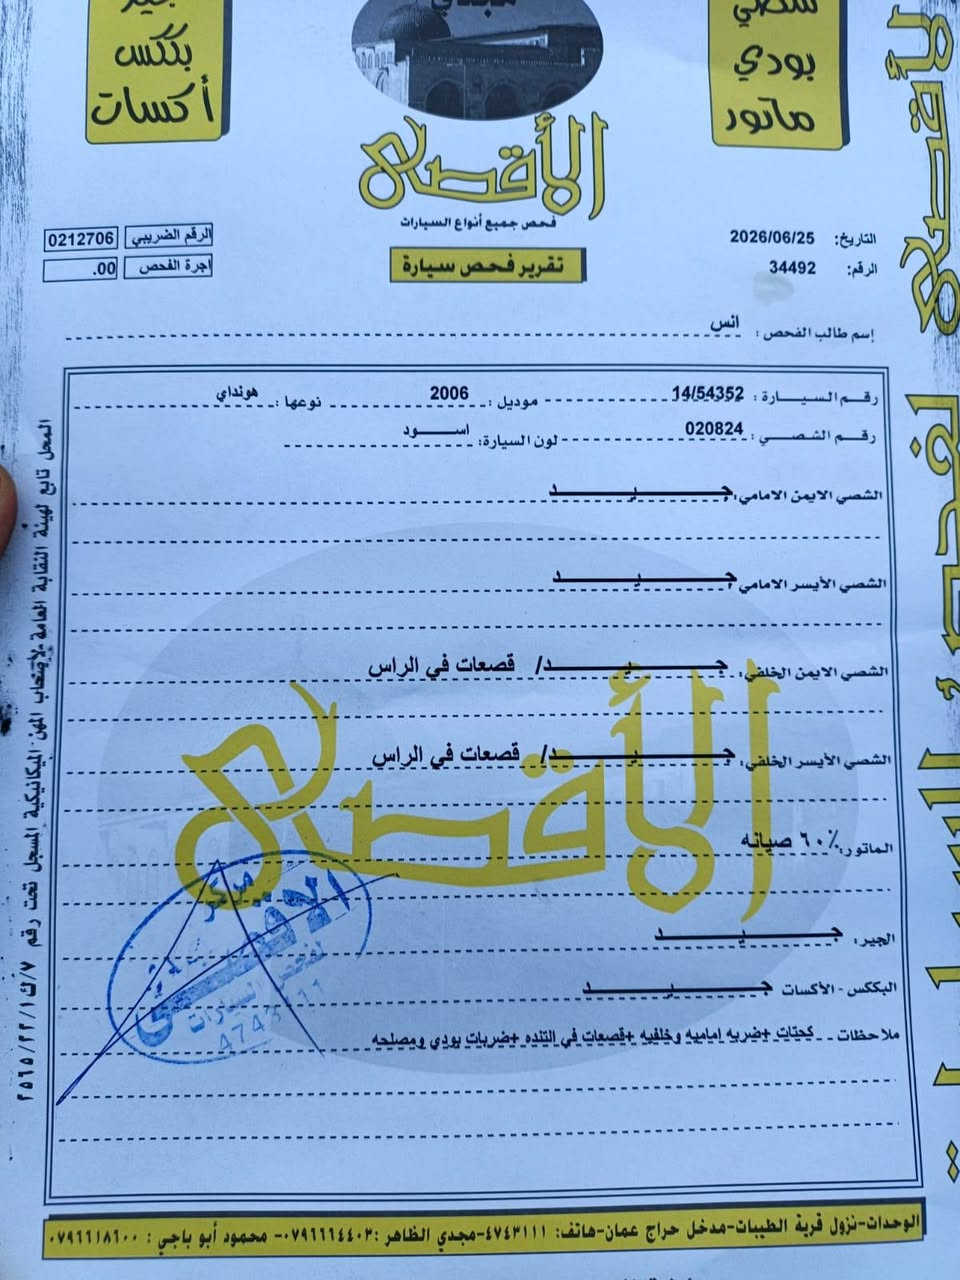 بككس
أكسات
شصي
بودي
ماتور
الأقصى
فحص جميع أنواع السيارات
تقرير فحص سيارة
الرقم الضريبي 0212706
اجرة الفحص .00
التاريخ: 2026/06/25
الرقم: 34492
إسم طالب الفحص : انس
رقم السيارة : 14/54352 موديل : 2006 نوعها : هونداي
رقم الشصي : 020824 لون السيارة: اسود
الشصي الايمن الامامي: جيد
الشصي الأيسر الامامي: جيد
الشصي الايمن الخلفي: جيد/ قصعات في الراس
الشصي الأيسر الخلفي: جيد/ قصعات في الراس
الماتور: ٦٠٪ صيانه
الجير: جيد
البككس - الأكسات جيد
ملاحظات كحتات +ضربه إماميه وخلفيه +قصعات في التنده +ضربات بودي ومصلحه
الأقصى
مركز
الاقصى
لفحص السيارات
الوحدات-نزول قرية الطيبات-مدخل حراج عمان-هاتف: ٤٧٤٣١١١-مجدي الظاهر :٠٧٩٦٦٦٤٤٠٣- محمود أبو باجي : ٠٧٩٦٦١٨٦٠٠
المحل تابع لهيئة النقابة العامة لأصحاب المهن الميكانيكية المسجل تحت رقم
الأقصى لفحص